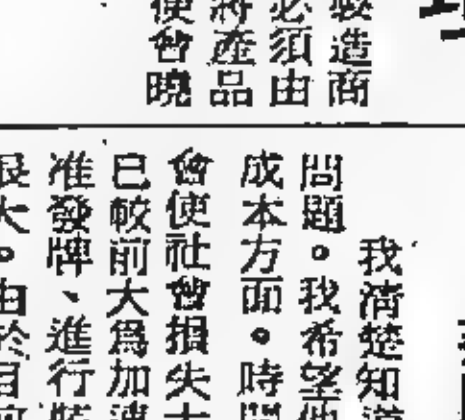 造商
必須由
將產品
便會曉
我清楚知道
問題。我希望他
成本方面。時間
會使社會損失
已較前大為加速
准發牌、進行
最大。由於目前